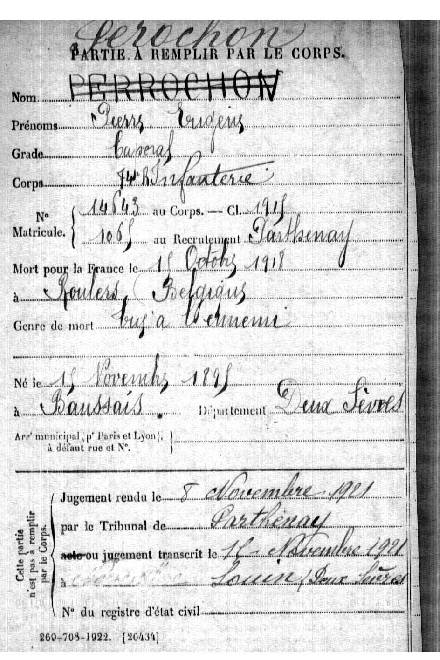 Perochon
PARTIE À REMPLIR PAR LE CORPS.
Nom PERROCHON
Prénoms Pierre Eugène
Grade Caporal
Corps 74 R. Infanterie
N° Matricule. { 14643 au Corps. — Cl. 1915
1065 au Recrutement Parthenay
Mort pour la France le 15 Octobre 1918
à Roulers (Belgique
Genre de mort Tué à l'ennemi
Né le 15 Novembre 1895
à Baussais. Département Deux Sèvres
Arrt municipal (pr Paris et Lyon), à défaut rue et N°. }
Cette partie n'est pas à remplir par le Corps.
Jugement rendu le 8 Novembre 1921
par le Tribunal de Parthenay
acte ou jugement transcrit le 15 Novembre 1921
à Louin (Deux Sèvres
N° du registre d'état civil
260-708-1922. [20434]